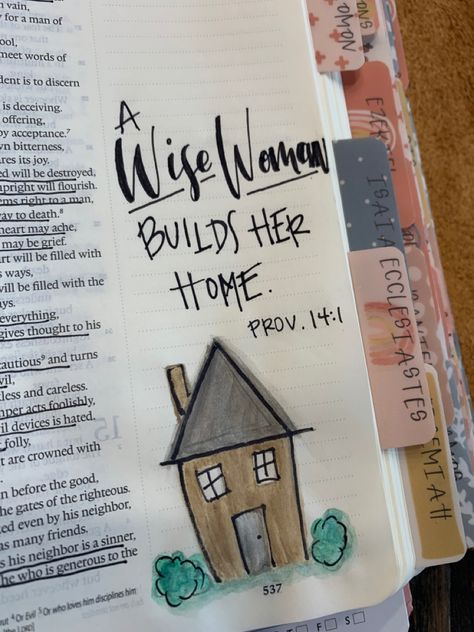 n vain,
y for a man of
ool,
meet words of
dent is to discern
is deceiving.
offering,
oy acceptance.⁷
wn bitterness,
res its joy.
ed will be destroyed,
upright will flourish.
ems right to a man,
way to death.⁸
heart may ache,
may be grief.
art will be filled with
s ways,
will be filled with the
ays.
everything,
gives thought to his
cautious⁹ and turns
vil,
less and careless.
mper acts foolishly,
il devices is hated.
folly,
t are crowned with
n before the good,
the gates of the righteous.
ked even by his neighbor,
as many friends.
his neighbor is a sinner,
he who is generous to the
nut ⁸ Or Evil ⁵ Or who loves him disciplines him
A
Wise Woman
BUILDS HER
HOME.
PROV. 14:1
537
OMON
EZEKIEL
ISAIA
ECCLESTASTES
EMIAH
F S